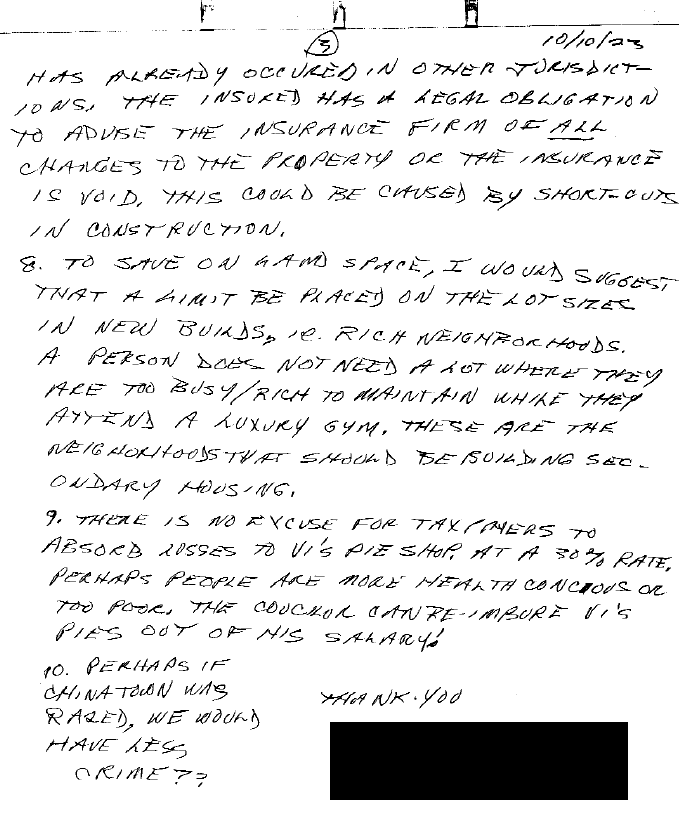 3
10/10/23
HAS ALREADY OCCURED IN OTHER JURISDICT-
IONS. THE INSURED HAS A LEGAL OBLIGATION
TO ADVISE THE INSURANCE FIRM OF ALL
CHANGES TO THE PROPERTY OR THE INSURANCE
IS VOID. THIS COULD BE CAUSED BY SHORT-CUTS
IN CONSTRUCTION.
8. TO SAVE ON LAND SPACE, I WOULD SUGGEST
THAT A LIMIT BE PLACED ON THE LOT SIZES
IN NEW BUILDS, ie. RICH NEIGHBORHOODS.
A PERSON DOES NOT NEED A LOT WHERE THEY
ARE TOO BUSY/RICH TO MAINTAIN WHILE THEY
ATTEND A LUXURY GYM. THESE ARE THE
NEIGHORHOODS THAT SHOULD BE BUILDING SEC-
ONDARY HOUSING.
9. THERE IS NO EXCUSE FOR TAX/PAYERS TO
ABSORD LOSSES TO VI'S PIE SHOP. AT A 30% RATE.
PERHAPS PEOPLE ARE MORE HEALTH CONCIOUS OR
TOO POOR. THE COUCILOR CAN RE-IMBURE VI'S
PIES OUT OF HIS SALARY!
10. PERHAPS IF
CHINATOWN WAS
RAZED, WE WOULD
HAVE LESS
CRIME??
THANK-YOU